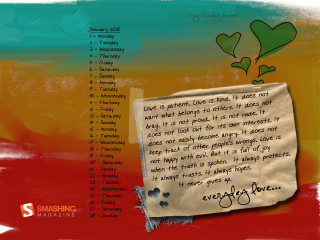 January 2010
1 - Monday
2 - Tuesday
3 - Wednesday
4 - Thursday
5 - Friday
6 - Saturday
7 - Sunday
8 - Monday
9 - Tuesday
10 - Wednesday
11 - Thursday
12 - Friday
13 - Saturday
14 - Sunday
15 - Monday
16 - Tuesday
17 - Wednesday
18 - Thursday
19 - Friday
20 - Saturday
21 - Sunday
22 - Monday
23 - Tuesday
24 - Wednesday
25 - Thursday
26 - Friday
27 - Saturday
28 - Sunday
Love is patient, Love is kind. It does not
want what belongs to others. It does not
brag. It is not proud. It is not rude. It
does not look out for its own interests. It
does not easily become angry. It does not
keep track of other people's wrongs. Love is
not happy with evil. But it is full of joy
when the truth is spoken. It always protects.
It always trusts. It always hopes.
It never gives up.
everyday love...
SMASHING
MAGAZINE